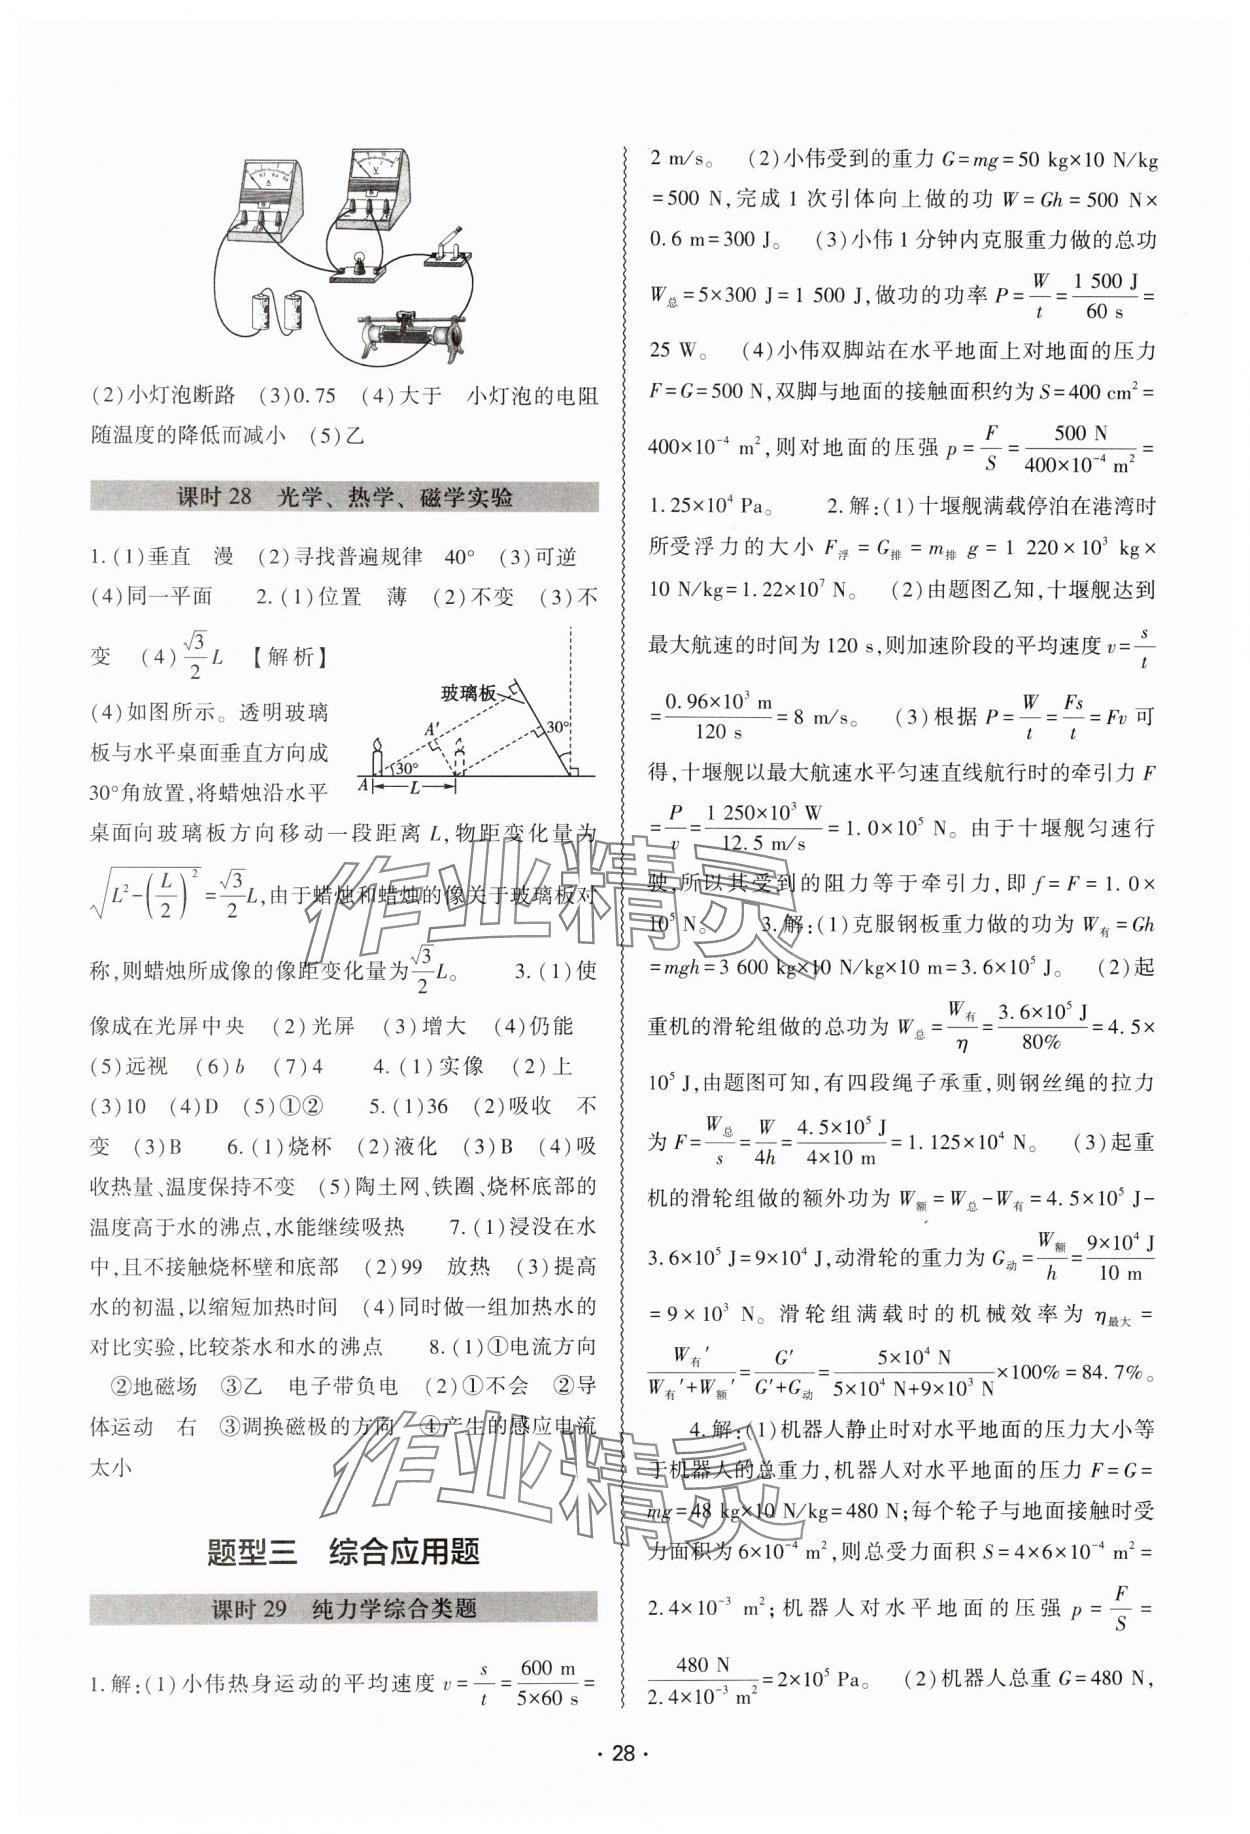 (2)小灯泡断路　(3)0.75　(4)大于　小灯泡的电阻
随温度的降低而减小　(5)乙
课时 28　光学、热学、磁学实验
1.(1)垂直　漫　(2)寻找普遍规律　40°　(3)可逆
(4)同一平面　2.(1)位置　薄　(2)不变　(3)不
变　(4)√3/2 L　【解析】
(4)如图所示。透明玻璃
板与水平桌面垂直方向成
30°角放置,将蜡烛沿水平
玻璃板
A′
30°
30°
A
L
桌面向玻璃板方向移动一段距离 L,物距变化量为
√(L²-(L/2)²)=√3/2 L,由于蜡烛和蜡烛的像关于玻璃板对
称,则蜡烛所成像的像距变化量为√3/2 L。　3.(1)使
像成在光屏中央　(2)光屏　(3)增大　(4)仍能
(5)远视　(6)b　(7)4　4.(1)实像　(2)上
(3)10　(4)D　(5)①②　5.(1)36　(2)吸收　不
变　(3)B　6.(1)烧杯　(2)液化　(3)B　(4)吸
收热量、温度保持不变　(5)陶土网、铁圈、烧杯底部的
温度高于水的沸点,水能继续吸热　7.(1)浸没在水
中,且不接触烧杯壁和底部　(2)99　放热　(3)提高
水的初温,以缩短加热时间　(4)同时做一组加热水的
对比实验,比较茶水和水的沸点　8.(1)①电流方向
②地磁场　③乙　电子带负电　(2)①不会　②导
体运动　右　③调换磁极的方向　④产生的感应电流
太小
题型三　综合应用题
课时 29　纯力学综合类题
1.解:(1)小伟热身运动的平均速度 v=s/t=600 m/(5×60 s)=
2 m/s。　(2)小伟受到的重力 G=mg=50 kg×10 N/kg
=500 N,完成 1 次引体向上做的功 W=Gh=500 N×
0.6 m=300 J。　(3)小伟 1 分钟内克服重力做的总功
W总=5×300 J=1 500 J,做功的功率 P=W/t=1 500 J/60 s=
25 W。　(4)小伟双脚站在水平地面上对地面的压力
F=G=500 N,双脚与地面的接触面积约为 S=400 cm²=
400×10⁻⁴ m²,则对地面的压强 p=F/S=500 N/(400×10⁻⁴ m²)=
1.25×10⁴ Pa。　2.解:(1)十堰舰满载停泊在港湾时
所受浮力的大小 F浮=G排=m排 g=1 220×10³ kg×
10 N/kg=1.22×10⁷ N。　(2)由题图乙知,十堰舰达到
最大航速的时间为 120 s,则加速阶段的平均速度 v=s/t
=0.96×10³ m/120 s=8 m/s。　(3)根据 P=W/t=Fs/t=Fv 可
得,十堰舰以最大航速水平匀速直线航行时的牵引力 F
=P/v=1 250×10³ W/12.5 m/s=1.0×10⁵ N。由于十堰舰匀速行
驶,所以其受到的阻力等于牵引力,即 f=F=1.0×
10⁵ N。　3.解:(1)克服钢板重力做的功为 W有=Gh
=mgh=3 600 kg×10 N/kg×10 m=3.6×10⁵ J。　(2)起
重机的滑轮组做的总功为 W总=W有/η=3.6×10⁵ J/80%=4.5×
10⁵ J,由题图可知,有四段绳子承重,则钢丝绳的拉力
为 F=W总/s=W/4h=4.5×10⁵ J/(4×10 m)=1.125×10⁴ N。　(3)起重
机的滑轮组做的额外功为 W额=W总-W有=4.5×10⁵ J-
3.6×10⁵ J=9×10⁴ J,动滑轮的重力为 G动=W额/h=9×10⁴ J/10 m
=9×10³ N。滑轮组满载时的机械效率为 η最大=
W有′/(W有′+W额′)=G′/(G′+G动)=5×10⁴ N/(5×10⁴ N+9×10³ N)×100%=84.7%。
4.解:(1)机器人静止时对水平地面的压力大小等
于机器人的总重力,机器人对水平地面的压力 F=G=
mg=48 kg×10 N/kg=480 N;每个轮子与地面接触时受
力面积为 6×10⁻⁴ m²,则总受力面积 S=4×6×10⁻⁴ m²=
2.4×10⁻³ m²;机器人对水平地面的压强 p=F/S=
480 N/(2.4×10⁻³ m²)=2×10⁵ Pa。　(2)机器人总重 G=480 N,
· 28 ·
作业精灵
作业精灵